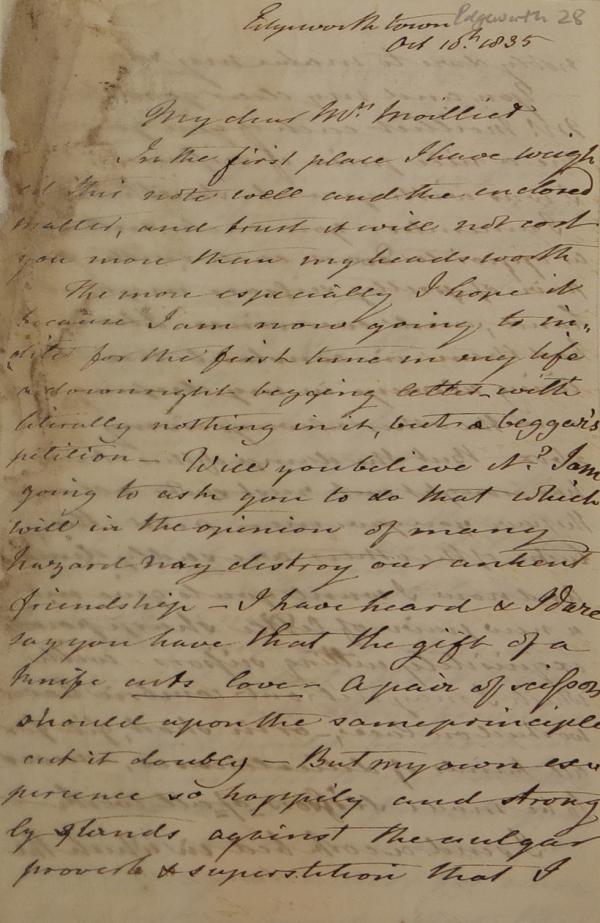 Edgeworthtown Edgeworth 28
Oct 18th. 1835
My dear Mrs. Moilliet
In the first place I have weigh
ed this note well and the enclosed
matter, and trust it will not cost
you more than my heads worth
The more especially I hope it
because I am now going to in,,
dite for the first time in my life
a downright begging letter with
literally nothing in it, but a beggar's
petition — Will you believe it? I am
going to ask you to do that which
will in the opinion of many
hazard nay destroy our antient
friendship — I have heard & I dare
say you have that the gift of a
knife cuts love — A pair of scissors
should upon the same principle
cut it doubly — But my own ex
perience so happily and strong
ly stands against the vulgar
proverb & superstition that I